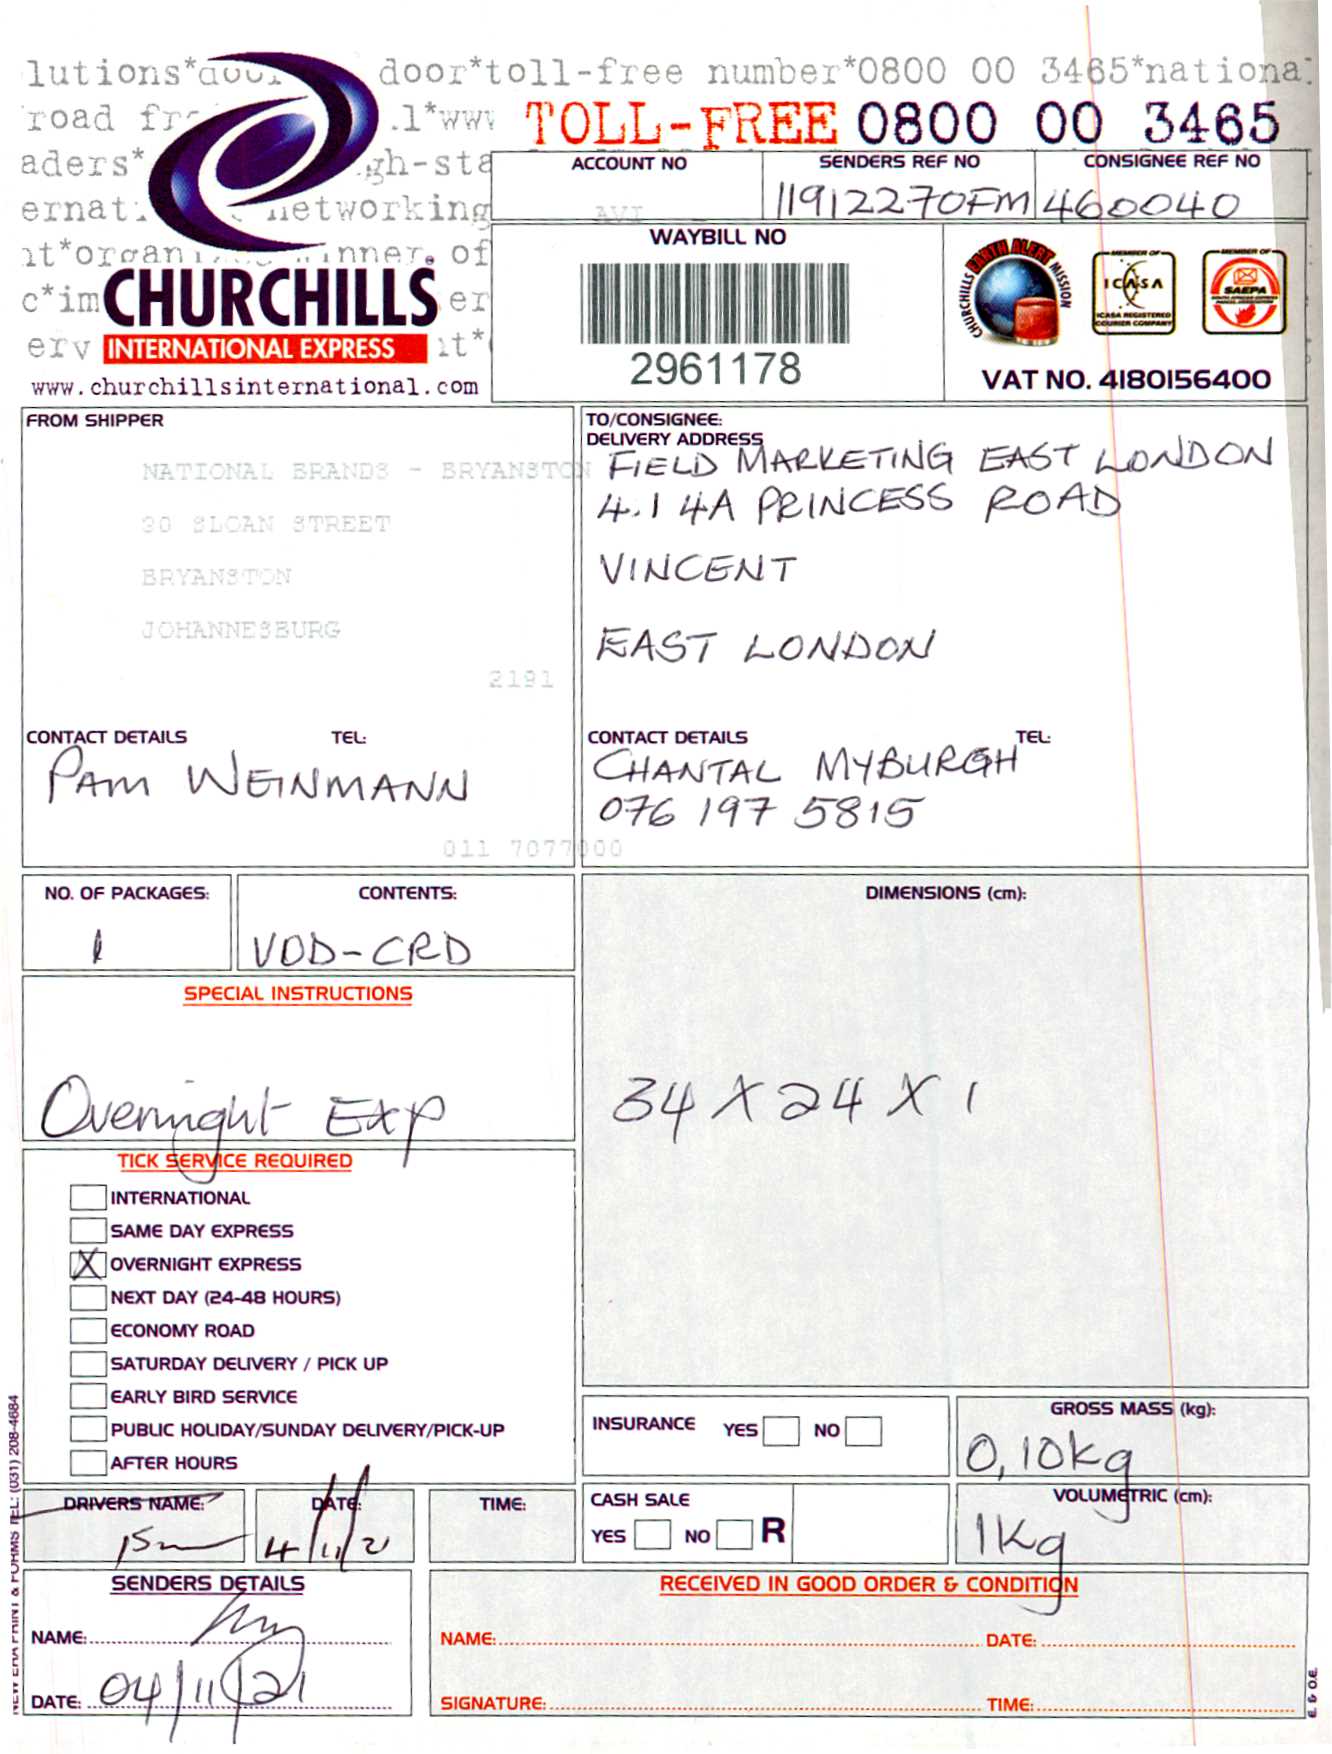 lutions*door door*toll-free number*0800 00 3465*national
road fr .l*www TOLL-FREE 0800 00 3465
aders* gh-sta
ernat networking
nt*organi inner. of
c*im er
erv nt*
CHURCHILLS
INTERNATIONAL EXPRESS
www.churchillsinternational.com
ACCOUNT NO
AVI
SENDERS REF NO
11912270FM
CONSIGNEE REF NO
460040
WAYBILL NO
2961178
CHURCHILLS EARTH ALERT MISSION
MEMBER OF
ICASA
ICASA REGISTERED
COURIER COMPANY
MEMBER OF
SAEPA
VAT NO. 4180156400
FROM SHIPPER
NATIONAL BRANDS - BRYANSTON
30 SLOAN STREET
BRYANSTON
JOHANNESBURG
2191
CONTACT DETAILS TEL:
PAM WEINMANN
011 7077000
TO/CONSIGNEE:
DELIVERY ADDRESS
FIELD MARKETING EAST LONDON
4.1 4A PRINCESS ROAD
VINCENT
EAST LONDON
CONTACT DETAILS TEL:
CHANTAL MYBURGH
076 197 5815
NO. OF PACKAGES:
1
CONTENTS:
VOD-CRD
SPECIAL INSTRUCTIONS
Overnight Exp
DIMENSIONS (cm):
34 X 24 X 1
TICK SERVICE REQUIRED
INTERNATIONAL
SAME DAY EXPRESS
X OVERNIGHT EXPRESS
NEXT DAY (24-48 HOURS)
ECONOMY ROAD
SATURDAY DELIVERY / PICK UP
EARLY BIRD SERVICE
PUBLIC HOLIDAY/SUNDAY DELIVERY/PICK-UP
AFTER HOURS
INSURANCE YES NO
GROSS MASS (kg):
0,10kg
CASH SALE
YES NO R
VOLUMETRIC (cm):
1Kg
DRIVERS NAME:
DATE:
4/11/21
TIME:
SENDERS DETAILS
NAME:
DATE: 04/11/21
RECEIVED IN GOOD ORDER & CONDITION
NAME: DATE:
SIGNATURE: TIME:
NEW ERA PRINT & FORMS TEL: (031) 208-4684
E & O.E.